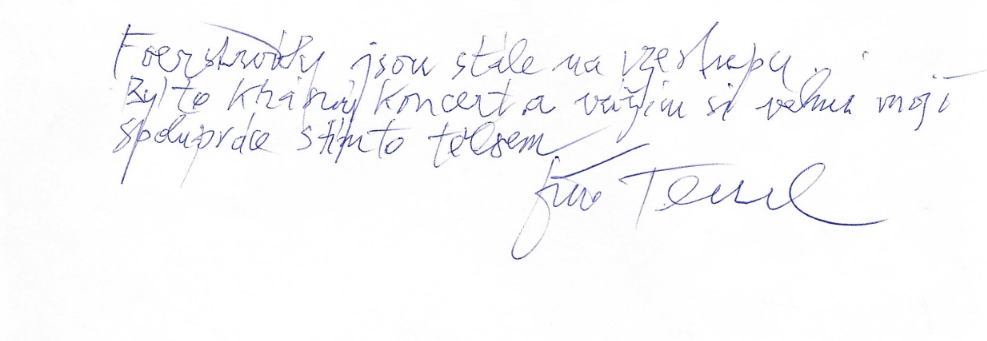 Foerstrovky jsou stále na vzestupu.
Byl to krásný koncert a vážím si velmi mojí
spolupráce s tímto tělesem
Jiří Teml